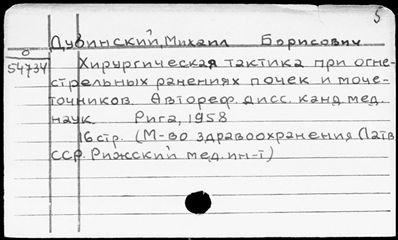 5
Дубинский, Михаил Борисович
0
54734
Хирургическая тактика при огне-
стрельных ранениях почек и моче-
точников. Автореф. дисс. канд. мед.
наук. Рига, 1958
16 стр. (М-во здравоохранения Латв.
ССР. Рижский мед. ин-т)